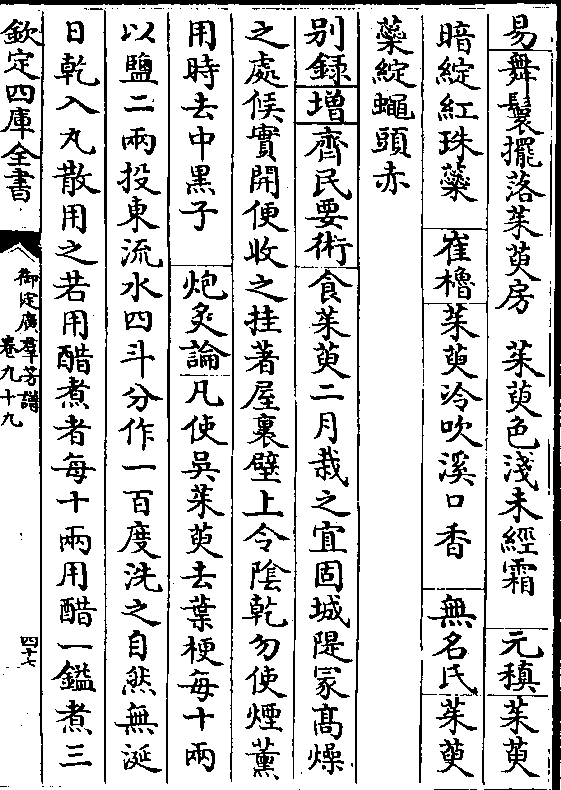 易舞鬟擺落茱萸房　茱萸色淺未經霜　元稹茱萸
暗綻紅珠蘂　崔櫓茱萸冷吹溪口香　無名氏茱萸
蘂綻蠅頭赤
别録增齊民要術食茱萸二月栽之宜固城隄冢髙燥
之處候實開便收之挂著屋裏壁上令陰乾勿使煙薰
用時去中黒子　炮炙論凡使吳茱萸去葉梗每十兩
以鹽二兩投東流水四斗分作一百度洗之自然無涎
日乾入丸散用之若用醋煮者每十兩用醋一鎰煮三
欽定四庫全書
御定廣羣芳譜
卷九十九
四十七